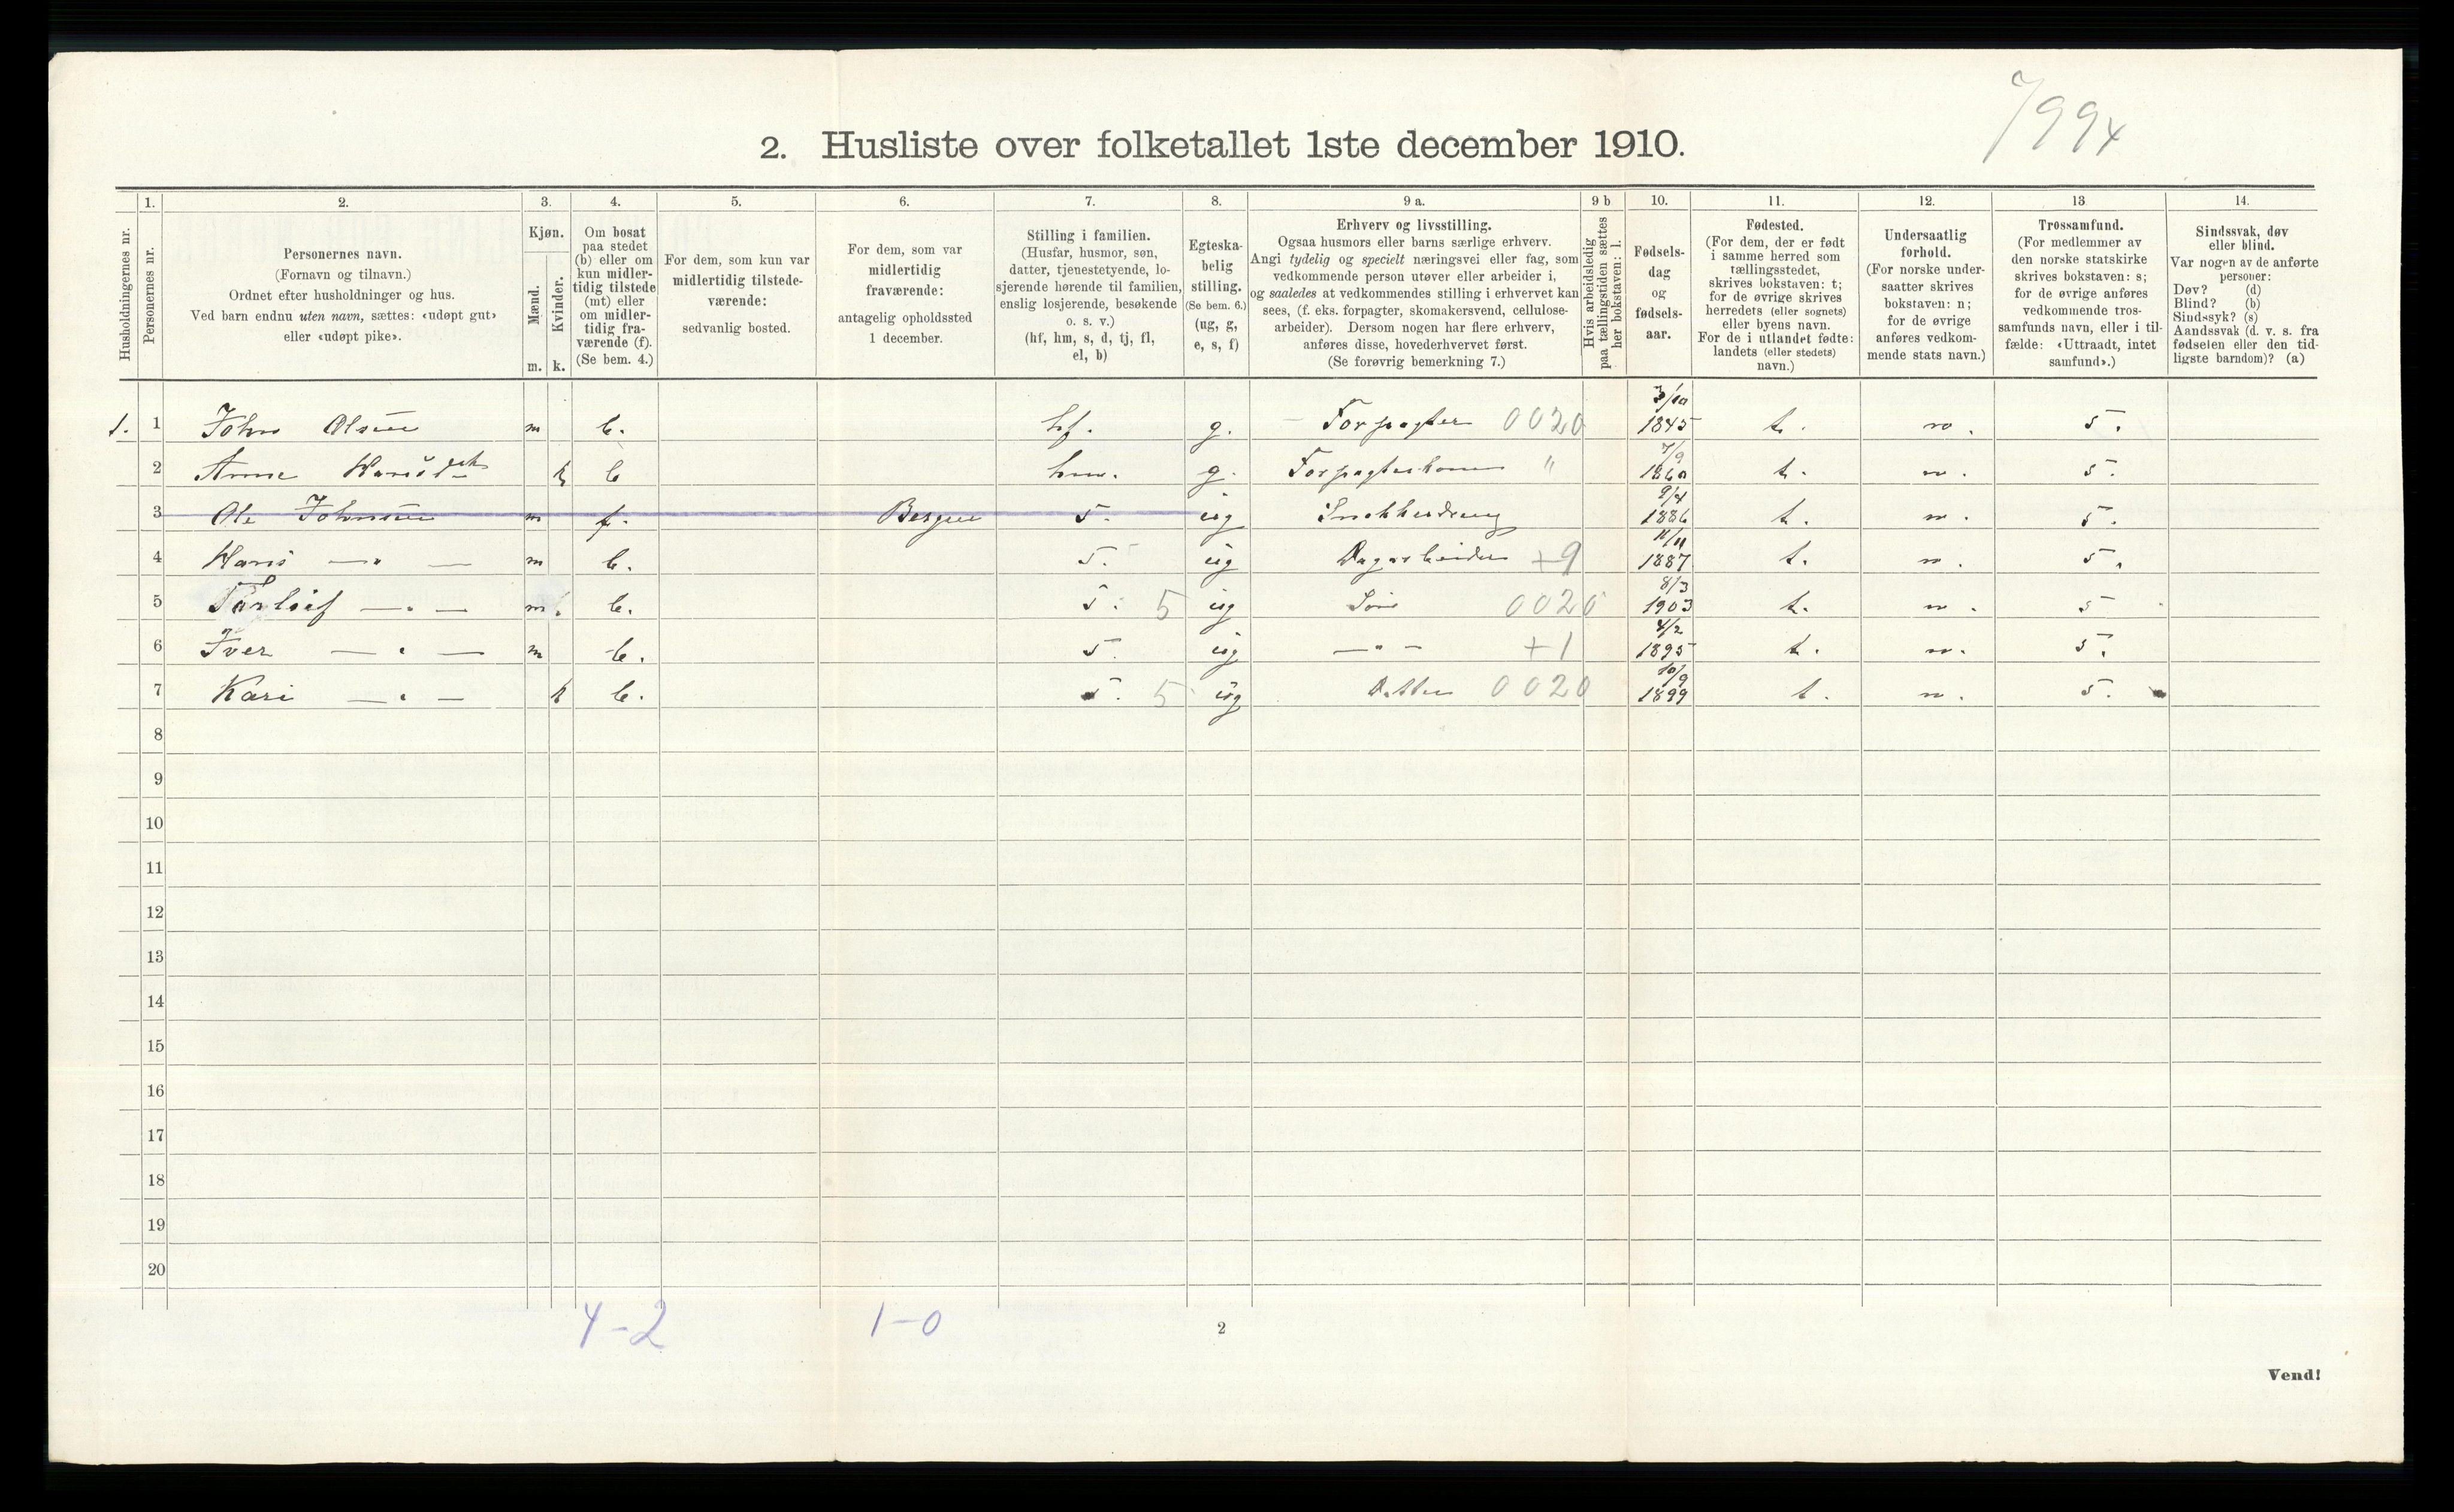 799x
2. Husliste over folketallet 1ste december 1910.
1. 2. 3. 4. 5. 6. 7. 8. 9 a. 9 b 10. 11. 12. 13 14.
Husholdningernes nr.
Personernes nr.
Personernes navn.
(Fornavn og tilnavn.)
Ordnet efter husholdninger og hus.
Ved barn endnu uten navn, sættes: «udøpt gut»
eller «udøpt pike».
Kjøn.
Mænd.
Kvinder.
m. k.
Om bosat
paa stedet
(b) eller om
kun midler-
tidig tilstede
(mt) eller
om midler-
tidig fra-
værende (f).
(Se bem. 4.)
For dem, som kun var
midlertidig tilstede-
værende:
sedvanlig bosted.
For dem, som var
midlertidig
fraværende:
antagelig opholdssted
1 december.
Stilling i familien.
(Husfar, husmor, søn,
datter, tjenestetyende, lo-
sjerende hørende til familien,
enslig losjerende, besøkende
o. s. v.)
(hf, hm, s, d, tj, fl,
el, b)
Egteska-
belig
stilling.
(Se bem. 6.)
(ug, g,
e, s, f)
Erhverv og livsstilling.
Ogsaa husmors eller barns særlige erhverv.
Angi tydelig og specielt næringsvei eller fag, som
vedkommende person utøver eller arbeider i,
og saaledes at vedkommendes stilling i erhvervet kan
sees, (f. eks. forpagter, skomakersvend, cellulose-
arbeider). Dersom nogen har flere erhverv,
anføres disse, hovederhvervet først.
(Se forøvrig bemerkning 7.)
Hvis arbeidsledig
paa tællingstiden sættes
her bokstaven: l.
Fødsels-
dag
og
fødsels-
aar.
Fødested.
(For dem, der er født
i samme herred som
tællingsstedet,
skrives bokstaven: t;
for de øvrige skrives
herredets (eller sognets)
eller byens navn.
For de i utlandet fødte:
landets (eller stedets)
navn.)
Undersaatlig
forhold.
(For norske under-
saatter skrives
bokstaven: n;
for de øvrige
anføres vedkom-
mende stats navn.)
Trossamfund.
(For medlemmer av
den norske statskirke
skrives bokstaven: s;
for de øvrige anføres
vedkommende tros-
samfunds navn, eller i til-
fælde: «Uttraadt, intet
samfund».)
Sindssvak, døv
eller blind.
Var nogen av de anførte
personer:
Døv? (d)
Blind? (b)
Sindssyk? (s)
Aandssvak (d. v. s. fra
fødselen eller den tid-
ligste barndom)? (a)
1. 1 John Olsen m b. hf. g. Forpagter 0020 3/10 1845 t. n. s.
2 Anne Hansdtr k b hm. g. Forpagterkone " 7/9 1860 t. n. s.
3 Ole Johnsen m f. Bergen s. ug Snekkerdreng 9/4 1886 t. n. s.
4 Hans —"— m b. s. ug Dagarbeider +9 11/11 1887 t. n. s.
5 Torleif —"— m. b. s. 5 ug Søn 0020 8/3 1903 t. n. s
6 Iver —"— m b. s. ug —"— +1 4/2 1895 t. n. s.
7 Kari —"— k b. 5 ug Datter 0020 10/9 1899 t. n. s.
8
9
10
11
12
13
14
15
16
17
18
19
20
4-2 1-0
2
Vend!